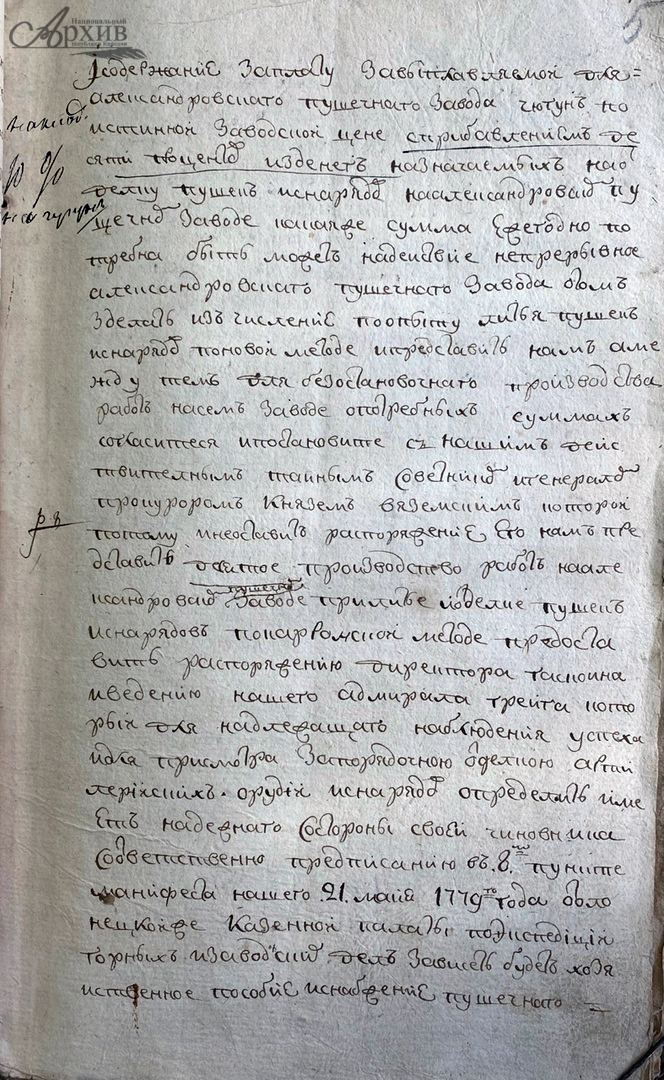 Национальный
АРХИВ
республики Карелия
5
Исодержание Заплату Завыплавляемой для=
александровскаго пушечнаго Завода чюгунъ по
истинной Заводской цене сприбавлениемъ де
сяти процентов изденегъ назначаемыхъ наоб
делку пушекъ иснарядов наалександровском пу
шечном Заводе какаяже сумма Ежегодно по
требна быть можетъ надействие непрерывное
александровскаго пушечнаго Завода о томъ
Зделать изчисление поопыту литья пушекъ
иснарядов поновой методе ипредставить намъ аме
жду темъ для безостановочнаго производства
работъ насемъ Заводе опотребныхъ суммахъ
согласитеся ипостановите съ нашимъ дейс
твительнымъ тайнымъ Советником игенерал
прокуроромъ Княземъ вяземскимъ которой
потому инеоставитъ распоряжение Его намъ пре
дставить самое производство работъ наале
ксандровском пушечном Заводе прилитье иоделке пушекъ
иснарядовъ покарронской методе предоста
вить распоряжению директора гаскоина
иведению нашего адмирала грейга кото
рый для надлежащаго наблюдения успеха
идля присмотра Запорядочною оделкою артил
лерийскихъ орудий иснарядов определить име
Етъ надежнаго Состороны своей чиновника
Соответственно предписанию въ 8. пункте
манифеста нашего 21. майя 1779го года оло
нецкойже Казенной палаты поэкспедиции
горныхъ изаводских делъ Зависеть будетъ хозя
йственное пособие иснабжение пушечнаго =